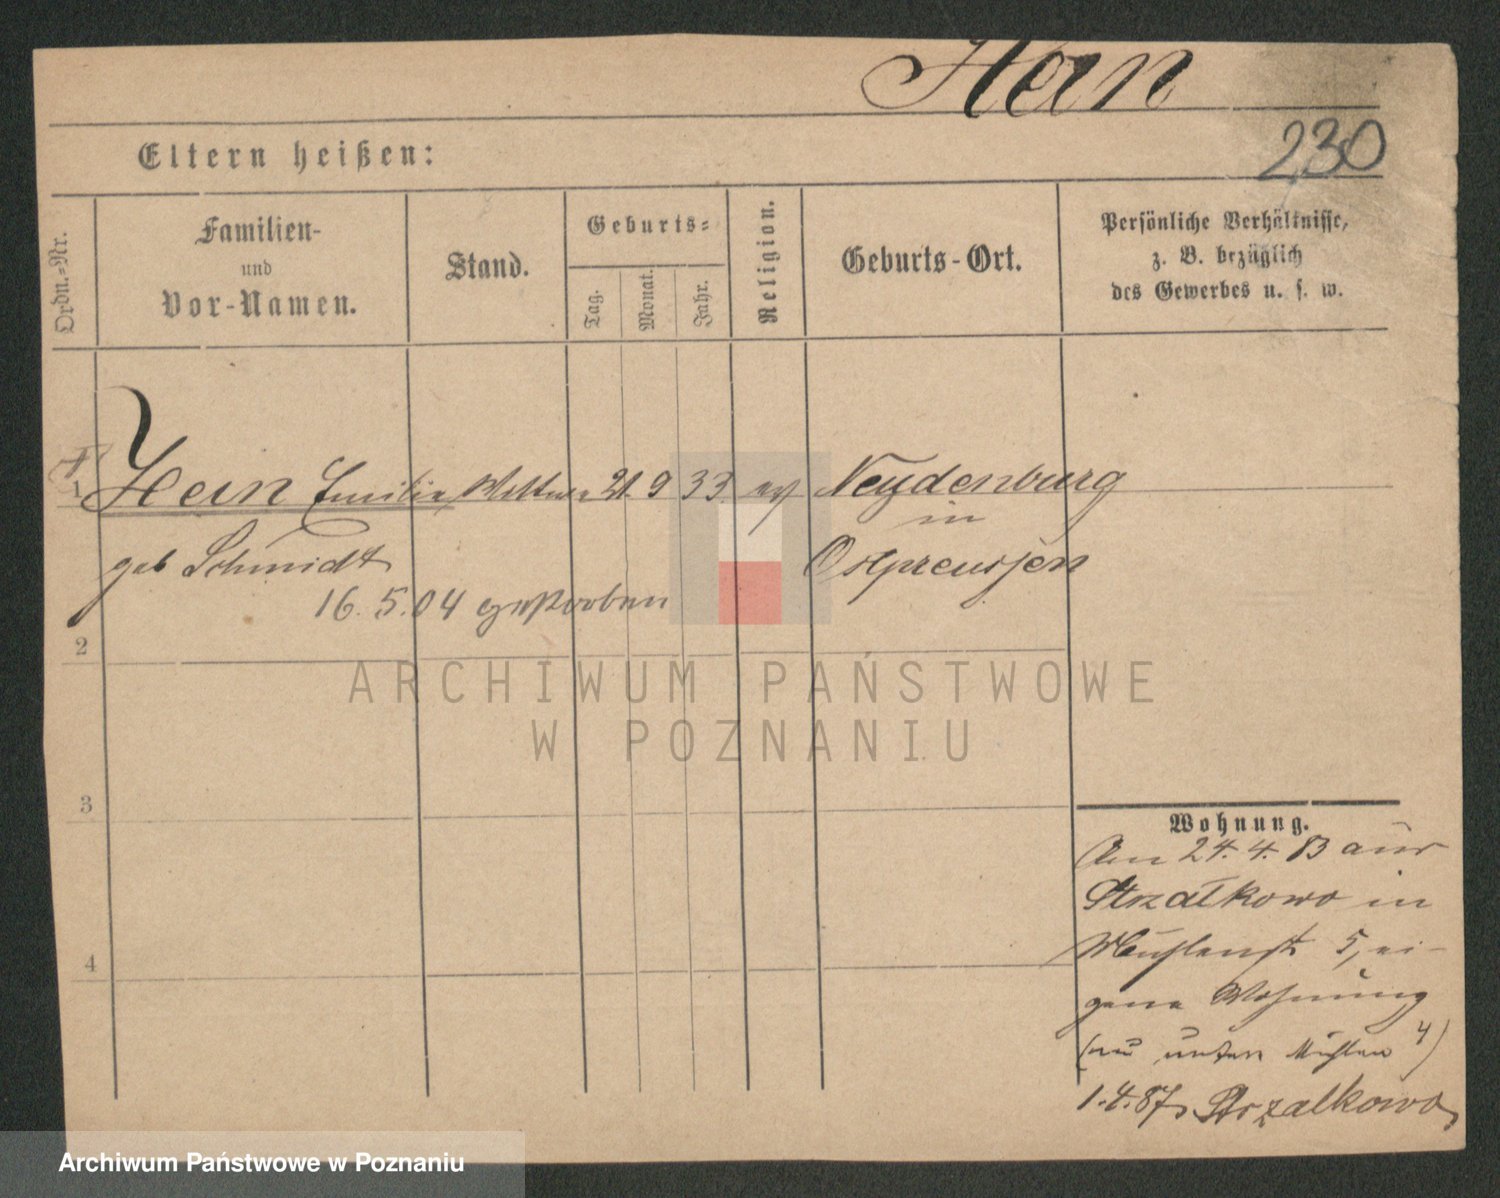 Hein
230
Eltern heißen:
Ordn.-Nr.
Familien-
und
Vor-Namen.
Stand.
Geburts-
Tag.
Monat.
Jahr.
Religion.
Geburts-Ort.
Persönliche Verhältnisse,
z. B. bezüglich
des Gewerbes u. s. w.
1 Hein Emilie Wittwe 21 9 33 ev Neydenburg
in
geb Schmidt Ostpreussen
16.5.04 gestorben
2
3
4
Wohnung.
Am 24.4.83 aus
Strzałkowo in
Mühlenst 5, ei-
gene Wohnung
(nu untere Mühlen 4)
1.4.87 Strzalkowo
ARCHIWUM PAŃSTWOWE
W POZNANIU
Archiwum Państwowe w Poznaniu